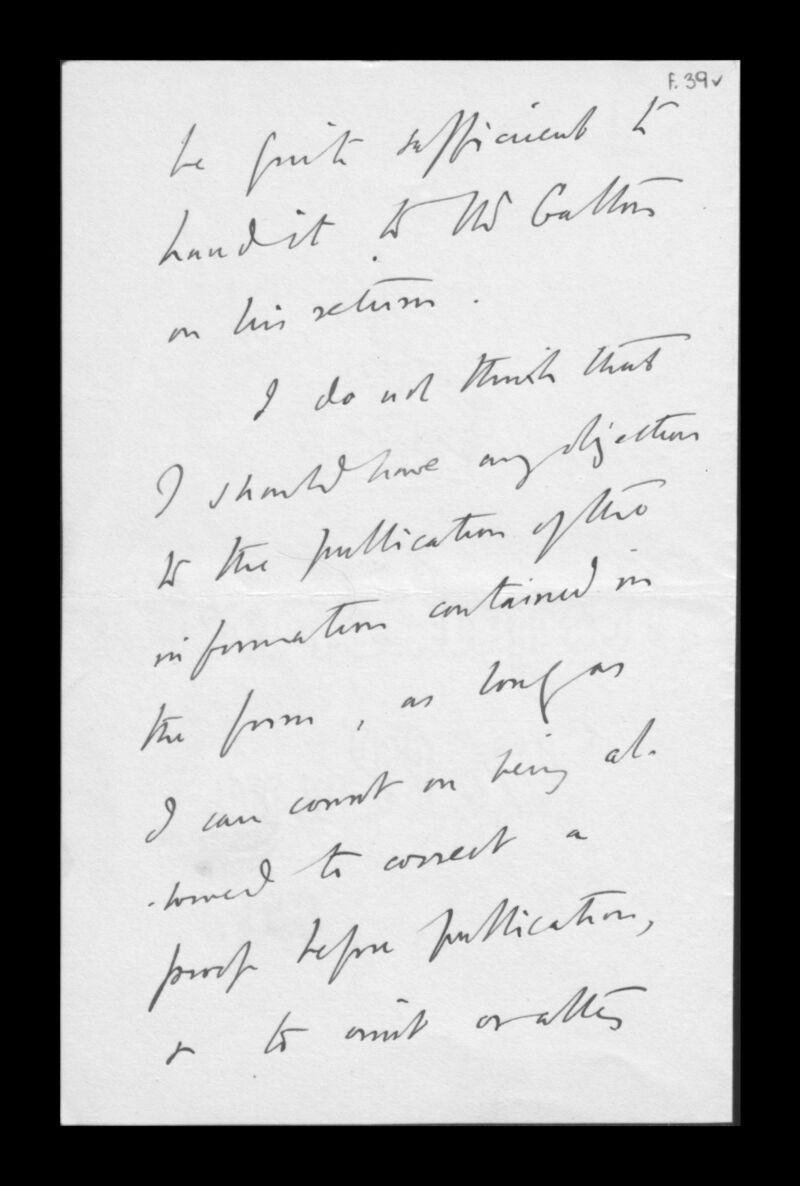 F. 39v
be quite sufficient to
hand it to Mr Galton
on his return.
I do not think that
I should have any objection
to the publication of the
information contained in
the form, as long as
I can count on being al-
-lowed to correct a
proof before publication,
& to omit or alter